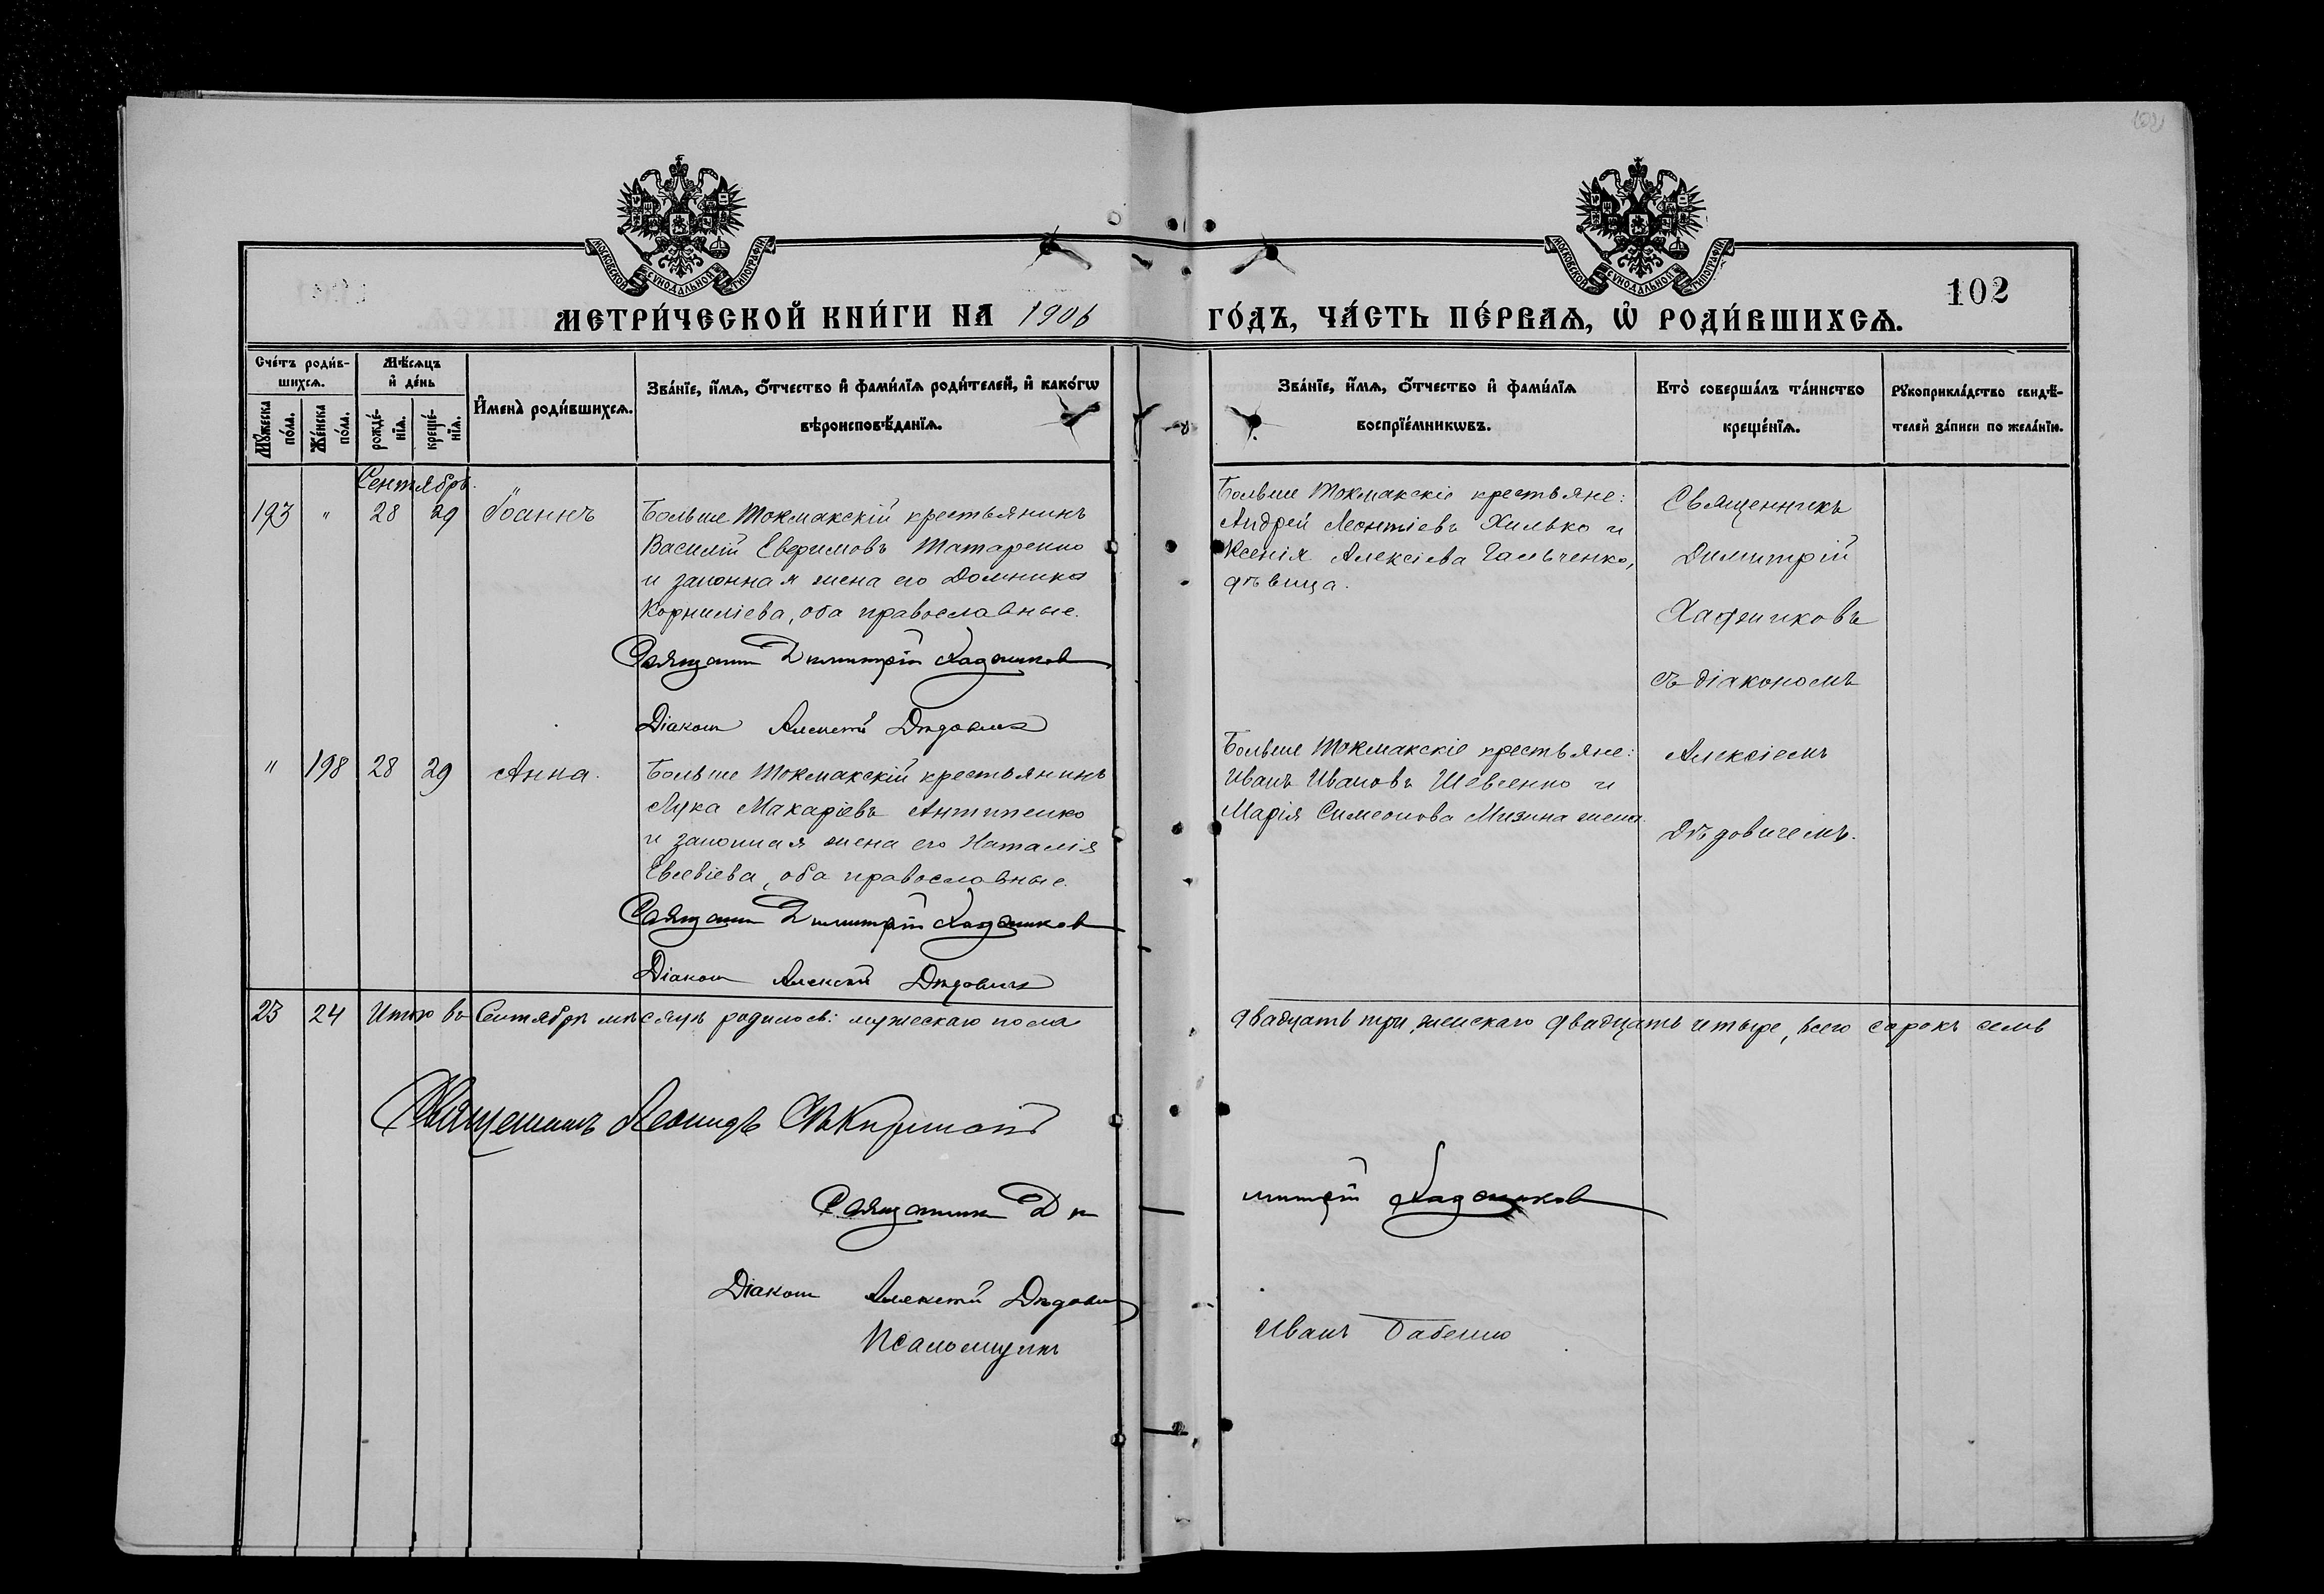 МОСКОВСКОЙ СѴНОДАЛЬНОЙ ТИПОГРАФІИ
МОСКОВСКОЙ СѴНОДАЛЬНОЙ ТИПОГРАФІИ
102
МЕТРИ́ЧЕСКОЙ КНИ́ГИ НА 1906 ГО́ДЪ, ЧА́СТЬ ПЕ́РВАѦ, Ѡ҆ РОДИ́ВШИХСѦ.
Сче́тъ роди́в-
шихсѧ.
Мѣ́сѧцъ
и҆ де́нь
Мꙋ́жеска
по́ла.
Же́нска
по́ла.
рожде́-
нїѧ.
креще́-
нїѧ.
И҆мена̀ роди́вшихсѧ.
Зва́нїе, и҆́мѧ, ѻ҆́тчество и҆ фами́лїѧ роди́телей, и҆ како́гѡ
вѣроисповѣ́данїѧ.
Зва́нїе, и҆́мѧ, ѻ҆́тчество и҆ фами́лїѧ
воспрїе́мникѡвъ.
Кто̀ соверша́лъ та́инство
креще́нїѧ.
Рꙋкоприкла́дство свидѣ́-
телей за́писи по жела́нїю.
Сентябрь.
193 " 28 29 Іоаннъ
Больше Токмакскій крестьянинъ
Василій Евфимовъ Татаренко
и законная жена его Домника
Корниліева, оба православные.
Священникъ Димитрій Хаджиковъ
Діаконъ Алексій Дѣдовичъ
Больше Токмакскіе крестьяне:
Андрей Леонтіевъ Хилько и
Ксенія Алексіева Гальченко,
дѣвица.
Священникъ
Димитрій
Хаджиковъ
съ діакономъ
Алексіемъ
Дѣдовичемъ.
" 198 28 29 Анна.
Больше Токмакскій крестьянинъ
Лука Макаріевъ Антипенко
и законная жена его Наталія
Евсевіева, оба православные.
Священникъ Димитрій Хаджиковъ
Діаконъ Алексій Дѣдовичъ
Больше Токмакскіе крестьяне:
Иванъ Ивановъ Шевченко и
Марія Симеонова Мизина жена.
23 24 Итого въ Сентябрѣ мѣсяцѣ родилось: мужескаго пола двадцать три, женскаго двадцать четыре, всего сорокъ семь
Священникъ Леонидъ
Священникъ Димитрій Хаджиковъ
Діаконъ Алексій Дѣдовичъ
Псаломщикъ Иванъ Бабенко